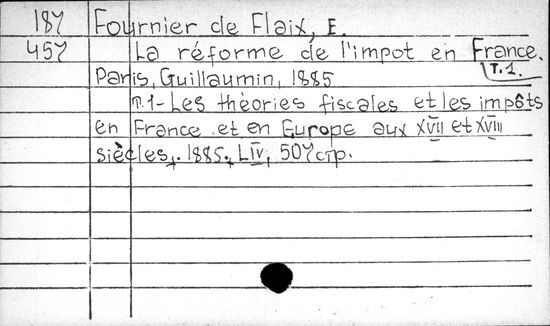 187 Fournier de Flaix, E.
457 La réforme de l'impot en France.
T.1.
Paris, Guillaumin, 1885
T.1- Les théories fiscales et les impôts
en France et en Europe aux XVII et XVIII
siècles. 1885. LIV, 507 стр.